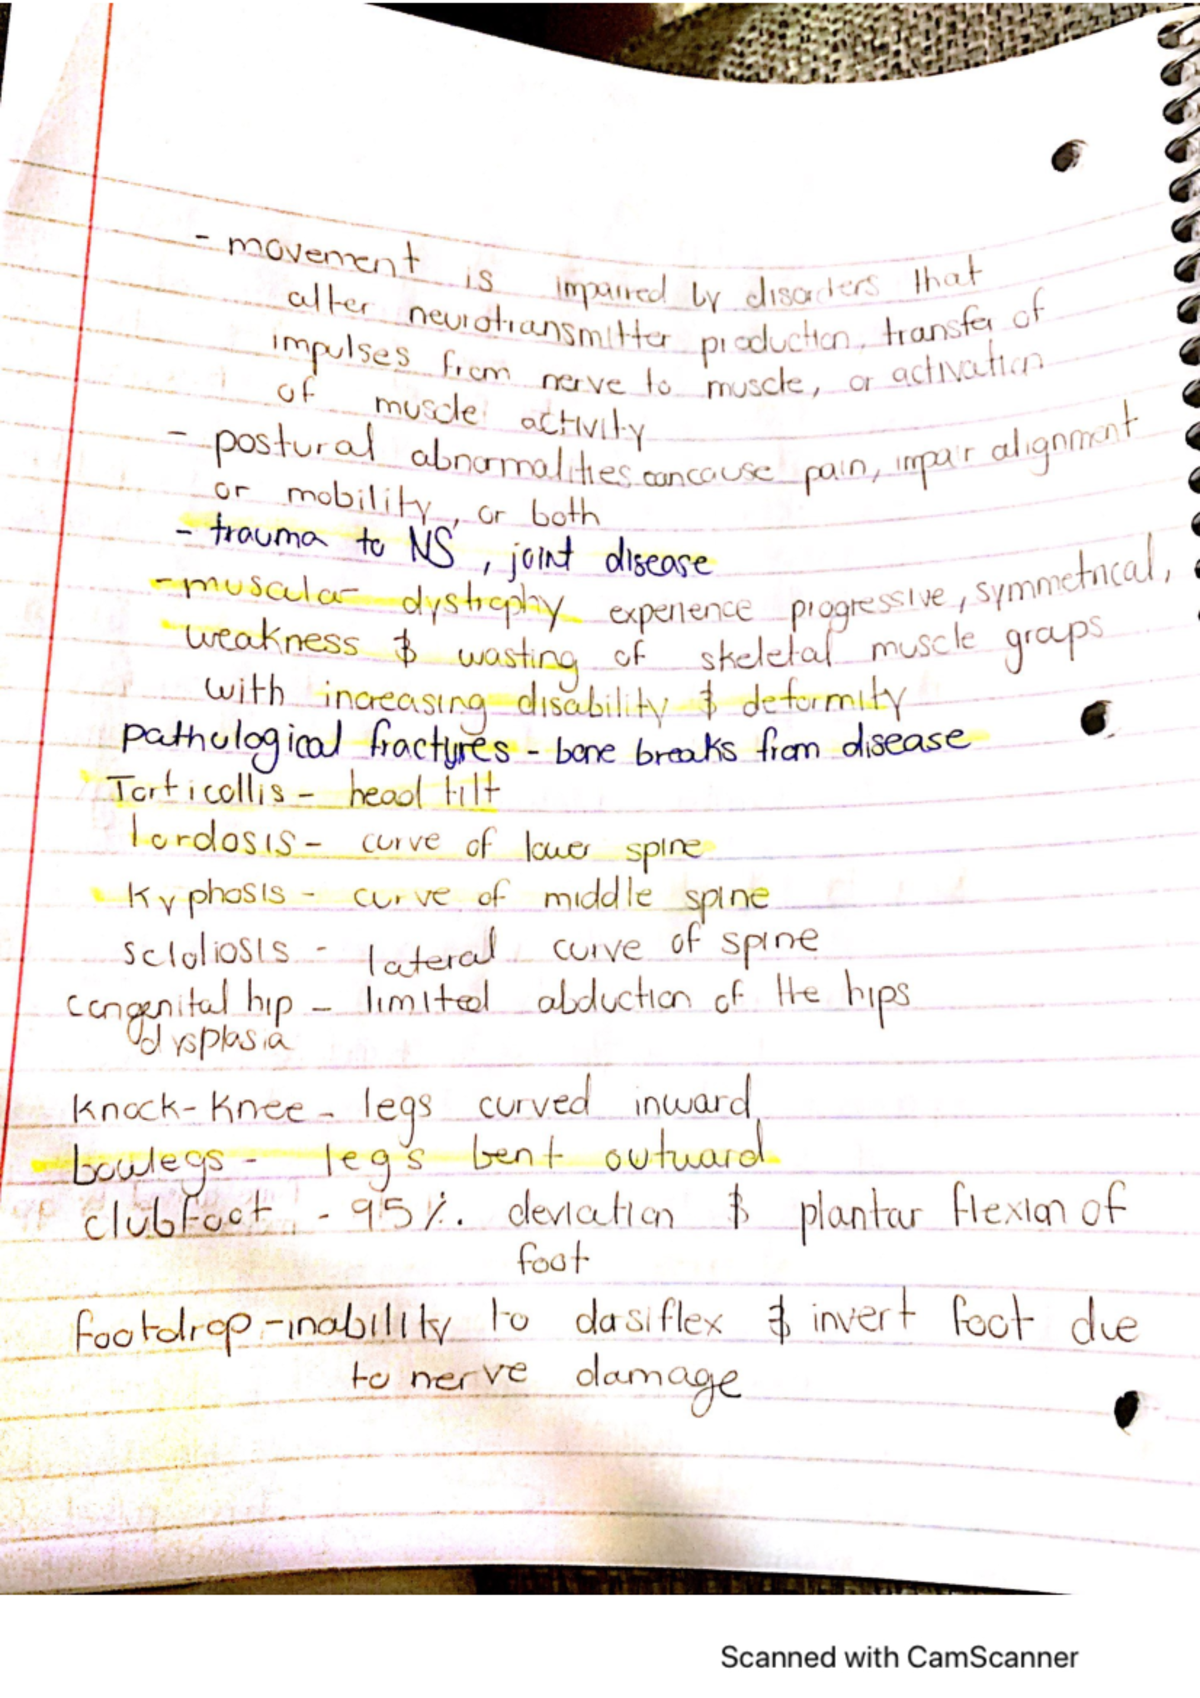 - movement is impaired by disorders that
alter neurotransmitter production, transfer of
impulses from nerve to muscle, or activation
of muscle activity
- postural abnormalities can cause pain, impair alignment
or mobility, or both
- trauma to NS, joint disease
- muscular dystrophy experience progressive, symmetrical,
weakness & wasting of skeletal muscle graps
with increasing disability & deformity
pathological fractures - bone breaks from disease
Torticollis - head tilt
lordosis - curve of lower spine
Kyphosis - curve of middle spine
scloliosis - lateral curve of spine
congenital hip - limited abduction of the hips
dysplasia
Knock-Knee - legs curved inward
bowlegs - legs bent outward
clubfoot - 95%. deviation & plantar flexion of
foot
footdrop - inability to dosiflex & invert foot due
to nerve damage
Scanned with CamScanner